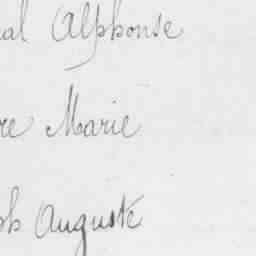 al Alphonse
re Marie
ph Auguste